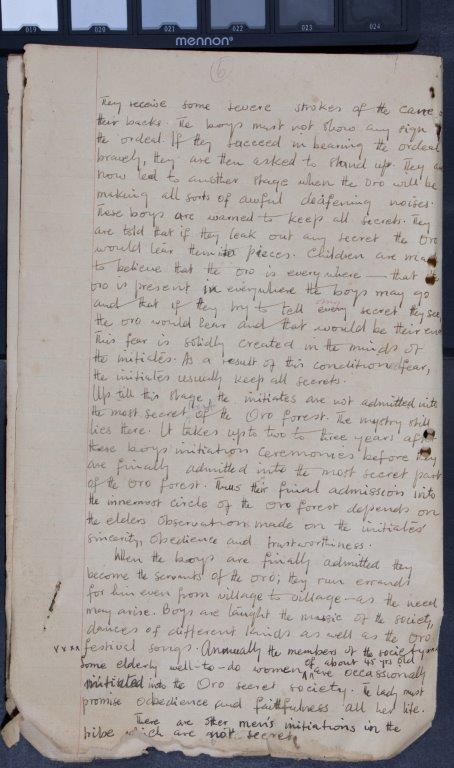 019 020 021 022 023 024
mennon
6
They receive some severe strokes of the cane
their backs. The boys must not show any sign
the ordeal. If they succeed in bearing the ordeal
bravely, they are then asked to stand up. They
now led to another stage when the Oro will be
making all sorts of awful deafening noises.
These boys are warned to keep all secrets. They
are told that if they leak out any secret the Oro
would tear them to pieces. Children are
to believe that the oro is everywhere — that
oro is present in everywhere the boys may go
and that if they try to tell every secret they see,
the oro would hear and that would be their
This fear is solidly created in the minds of
the initiates. As a result of this condition fear,
the initiates usually keep all secrets.
Up till this stage, the initiates are not admitted into
the most secret of the Oro forest. The mystry still
lies there. It takes up to two to three years
these boys initiation ceremonies before they
are finally admitted into the most secret part
of the oro forest. Thus their final admission into
the innermost circle of the oro forest depends on
the elders observations made on the initiates'
sincerity, obedience and trustworthiness.
When the boys are finally admitted they
become the servants of the oro; they run errands
for him even from village to village — as the need
may arise. Boys are taught the music of the society,
dances of different kinds as well as the Oro
festival songs. Annually the members of the society
some elderly well-to-do women of about 45 yrs old are occassionally
initiated into the Oro secret society. The lady must
promise obedience and faithfulness all her life.
There are other men's initiations in the
tribe which are not secret.